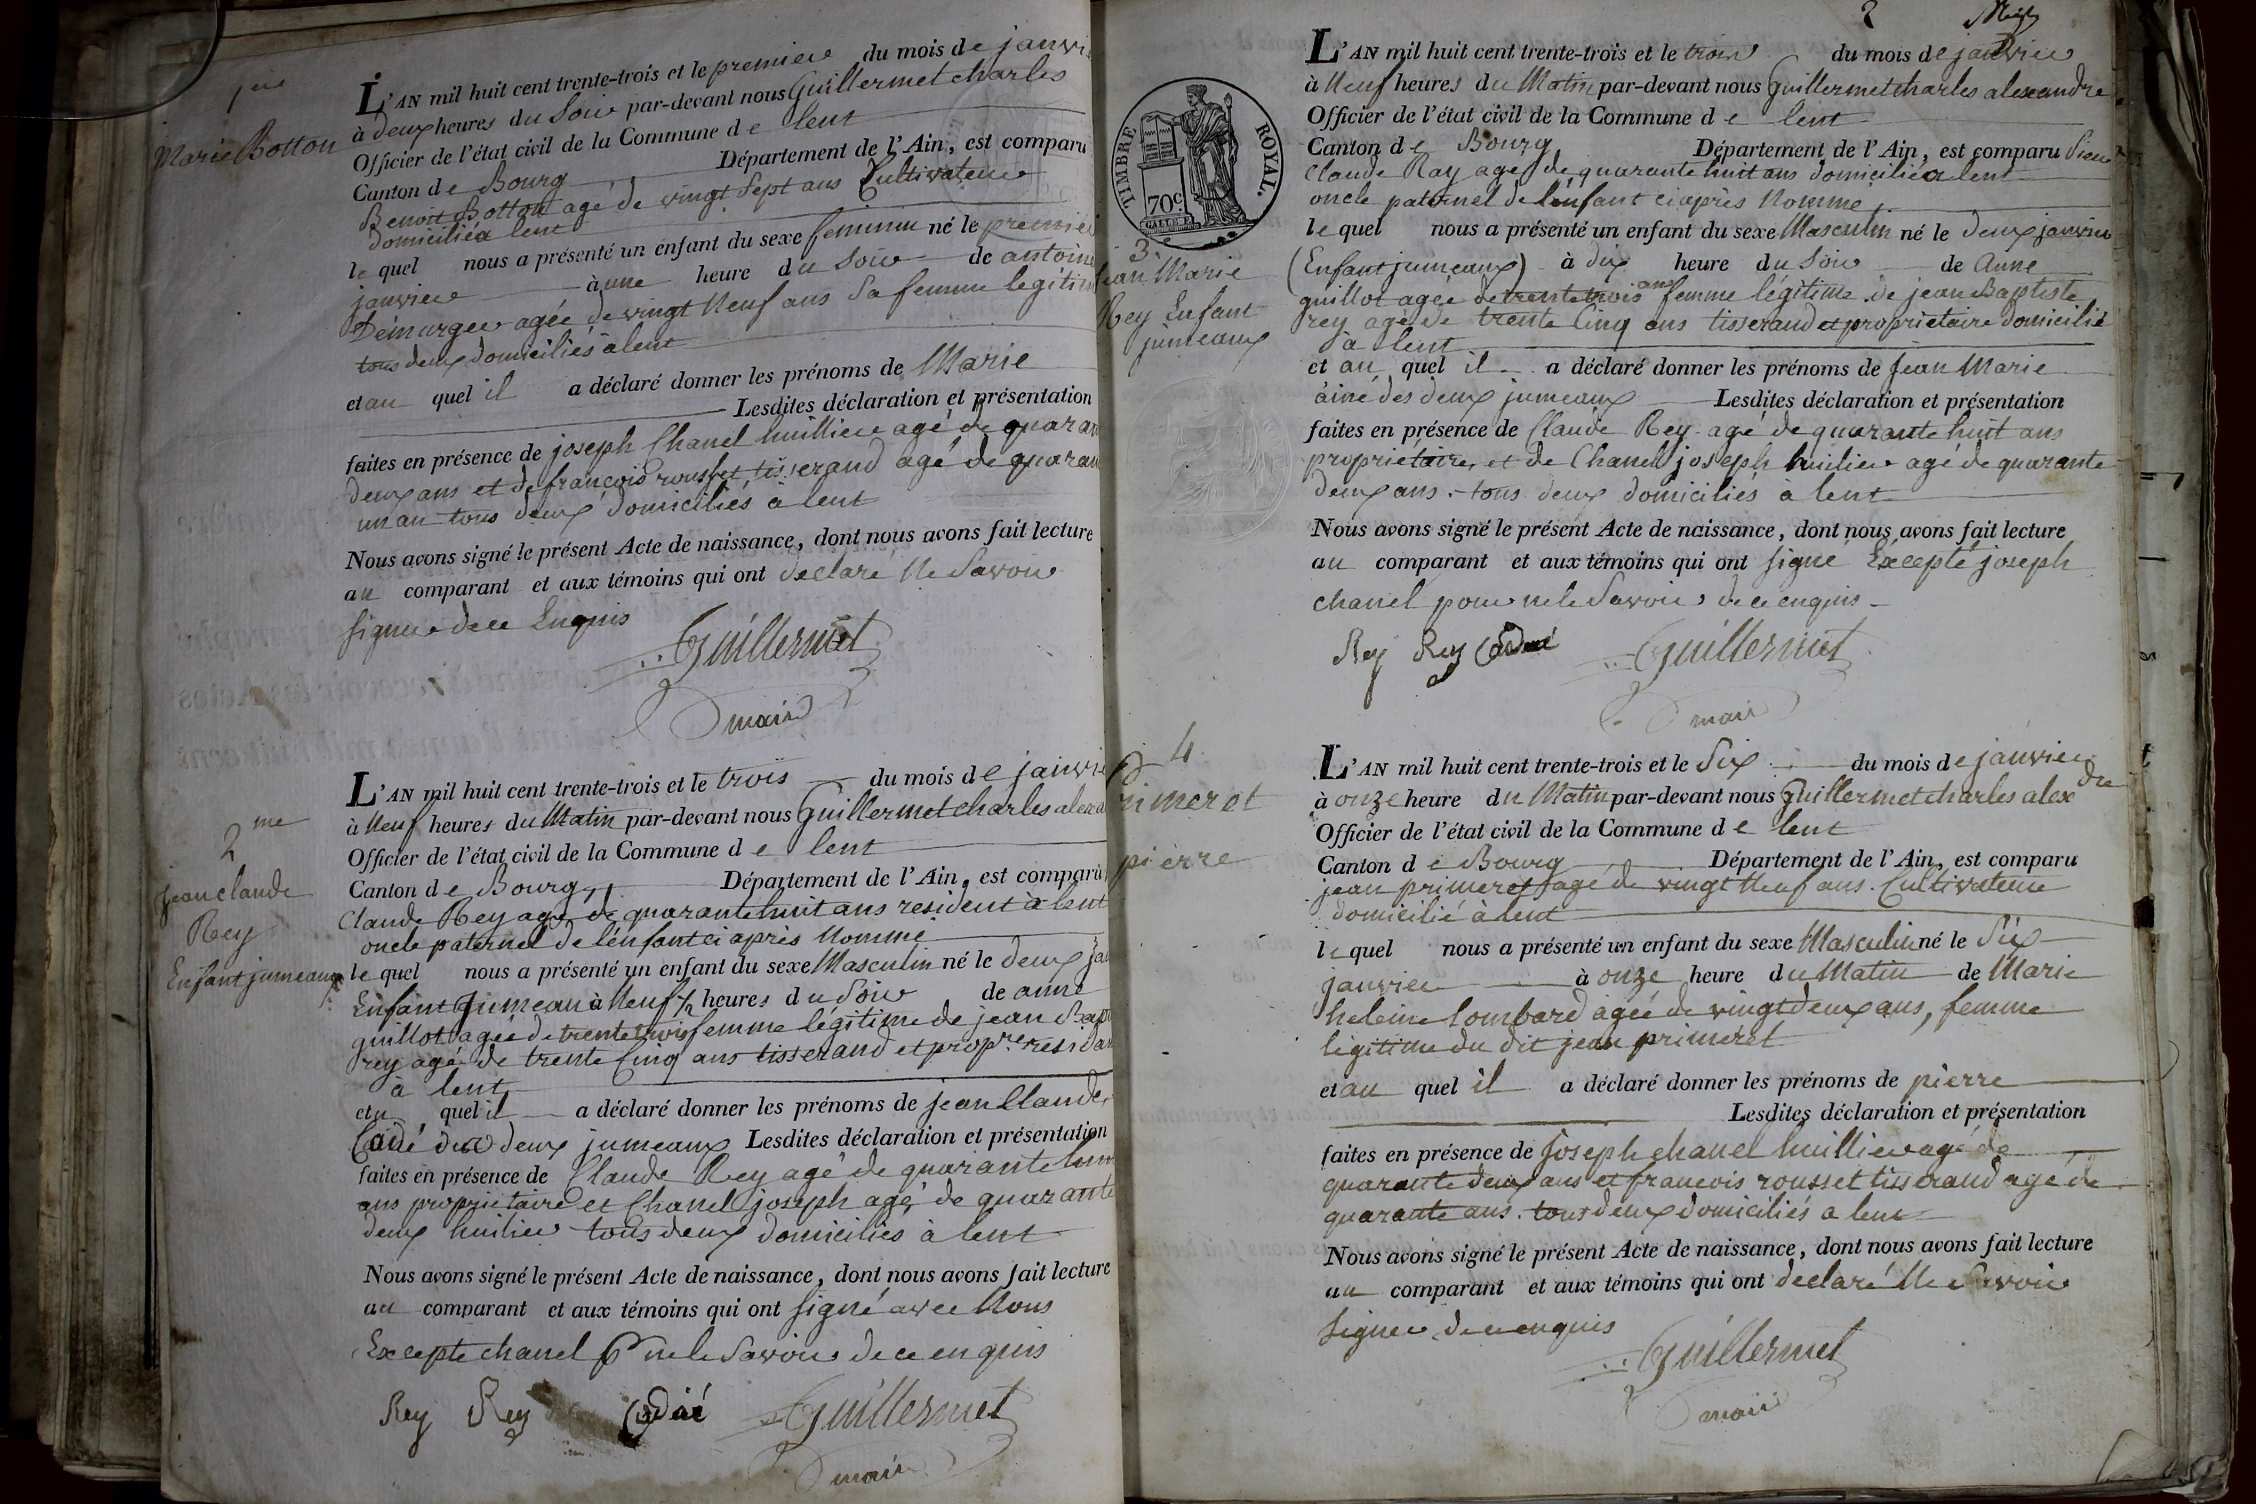 1ere
Marie Botton
L'AN mil huit cent trente-trois et le premier du mois de janvi
à deux heures du Soir par-devant nous Guillermet charles
Officier de l'état civil de la Commune de lent
Canton de Bourg Département de l'Ain, est comparu
Benoit Botton agé de vingt Sept ans Cultivateur
domicilié a lent
le quel nous a présenté un enfant du sexe feminin né le premier
janvier à une heure du Soir de antoine
Démarger agée de vingt Neuf ans Sa femme legitim
tous deux domiciliés à lent
et au quel il a déclaré donner les prénoms de Marie
Lesdites déclaration et présentation
faites en présence de joseph Chanel huillier agé de quaran
deux ans et de françois rousset tisserand agé de quaran
un an tous deux domiciliés à lent
Nous avons signé le présent Acte de naissance, dont nous avons fait lecture
au comparant et aux témoins qui ont declaré Ne Savoir
signer de ce Enquis
Guillermet
maire
2me
jean claude
Rey
Enfant jumeaux
L'AN mil huit cent trente-trois et le trois du mois de janvie
à Neuf heures du Matin par-devant nous Guillermet charles alexa
Officier de l'état civil de la Commune de lent
Canton de Bourg Département de l'Ain, est comparu
Claude Rey agé de quarante huit ans resident à lent
oncle paternel de l'énfant ci après Nommé
le quel nous a présenté un enfant du sexe Masculin né le deux ja
Enfant Jumeau à Neuf ½ heures du Soir de anne
guillot agée de trente trois femme légitime de jean Bap
rey agé de trente Cinq ans tisserand et propre residan
à lent
et u quel il a déclaré donner les prénoms de jean Claude
Cadé des deux jumeaux Lesdites déclaration et présentation
faites en présence de Claude Rey agé de quarante huit
ans propriétaire et Chanel joseph agé de quarante
deux huilier tous deux domiciliés à lent
Nous avons signé le présent Acte de naissance, dont nous avons fait lecture
au comparant et aux témoins qui ont signé avec Nous
Excepte chanel pr ne le Savoir de ce enquis
Rey Rey Cadé Guillermet
maire
2
TIMBRE ROYAL.
70c
3
jean Marie
Rey Enfant
jumeaux
L'AN mil huit cent trente-trois et le trois du mois de janvier
à Neuf heures du Matin par-devant nous Guillermet charles alexandre
Officier de l'état civil de la Commune de lent
Canton de Bourg Département de l'Ain, est comparu Sieur
Claude Ray agé de quarante huit ans domicilié a lent
oncle paternel de l'enfant ci après Nommé
le quel nous a présenté un enfant du sexe Masculin né le deux janvier
(Enfant jumeaux) à dix heure du Soir de Anne
guillot agée de trente trois ans femme légitime de jean Baptiste
rey agé de trente Cinq ans tisserand et propriétaire domicilié
à lent
et au quel il a déclaré donner les prénoms de Jean Marie
ainé des deux jumeaux Lesdites déclaration et présentation
faites en présence de Claude Rey agé de quarante huit ans
propriétaire, et de Chanel joseph huilier agé de quarante
deux ans tous deux domiciliés à lent
Nous avons signé le présent Acte de naissance, dont nous avons fait lecture
au comparant et aux témoins qui ont signé Excepté joseph
chanel pour ne le Savoir de ce enquis
Rey Rey Cadé Guillermet
maire
4
primeret
pierre
L'AN mil huit cent trente-trois et le Six du mois de janvier
à onze heure du Matin par-devant nous Guillermet charles alexdre
Officier de l'état civil de la Commune de lent
Canton de Bourg Département de l'Ain, est comparu
jean primeret agé de vingt Neuf ans Cultivateur
domicilié à lent
le quel nous a présenté un enfant du sexe Masculin né le Six
janvier à onze heure du Matin de Marie
heleine lombard agée de vingt deux ans, femme
légitime du dit jean primeret
et au quel il a déclaré donner les prénoms de pierre
Lesdites déclaration et présentation
faites en présence de Joseph chanel huillier agé de
quarante deux ans et francois rousset tisserand agé de
quarante ans tous deux domiciliés a lent
Nous avons signé le présent Acte de naissance, dont nous avons fait lecture
au comparant et aux témoins qui ont declaré Ne Savoir
signer de ce enquis
Guillermet
maire